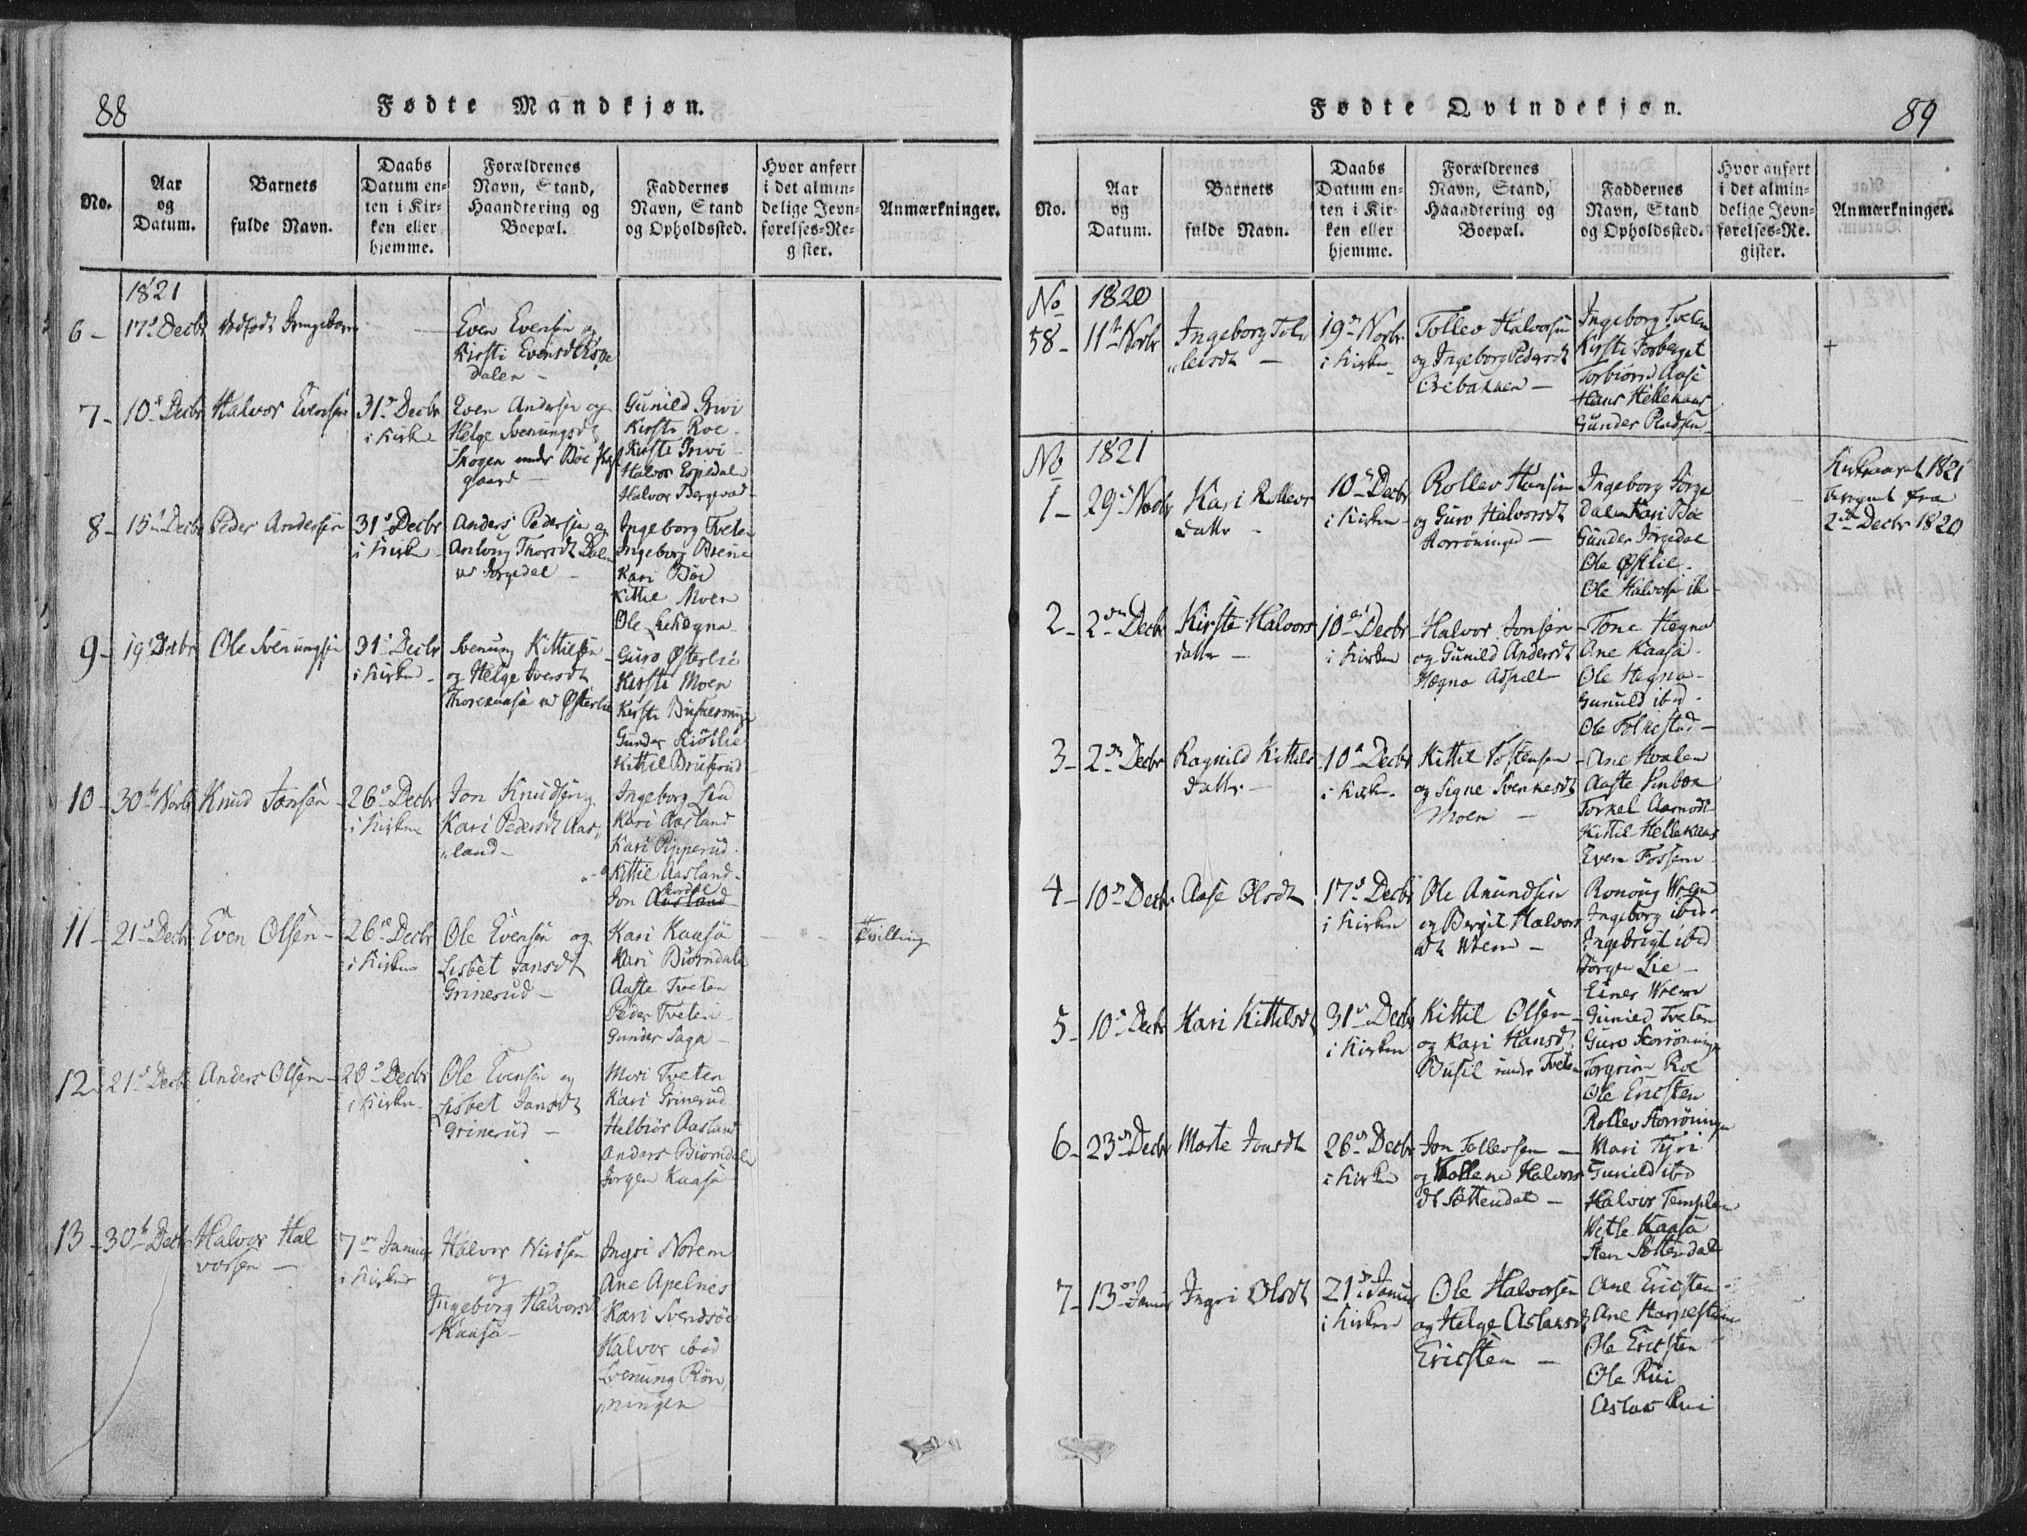 88
Fødte Mandkjøn.
No.
Aar
og
Datum.
Barnets
fulde Navn.
Daabs
Datum en-
ten i Kir-
ken eller
hjemme.
Forældrenes
Navn, Stand,
Haandtering og
Boepæl.
Faddernes
Navn, Stand
og Opholdssted.
Hvor anført
i det almin-
delige Jevn-
førelses-Re-
gister.
Anmærkninger.
1821
6 - 17 Decbr
Even Evensen og
Kirsti Evensdt
dalen -
7 - 10 Decbr
Halvor Evensen
31 Decbr
i Kirken
Even Andersen og
Helge Svenungsdt
Skogen under Bøe
gaard -
Gunild
Kirsti Roe
Kirsti
Halvor Espedalen
Halvor
8 - 15 Decbr
Peder Andersen
31 Decbr
i Kirken
Anders Pedersen og
Thorsdt Dalen
Ingeborg Tveten
Ingeborg
Kari Bøe
Kittil Moen
Ole
9 - 19 Decbr
Ole Svenungsen
31 Decbr
i Kirken -
Svenung Kittilsen
og Helge Iversdt
Østerlie
Guro Østerlie
Kirsti Moen
Kirsti
Gunder
Kittil
10 - 30 Novbr
Knud Jonsen
26 Decbr
i Kirken
Jon Knudsen og
Kari Pedersdt Aas
land -
Ingeborg Lia
Kari Aasland
Kari Pipperud
Kittil Aasland -
Jon Aasland
11 - 21 Decbr
Even Olsen -
26 Decbr
i Kirken
Ole Evensen og
Lisbet Jansdt
Grinerud -
Kari Kaasa
Kari Biørndalen
Aaste Tveten
Peder Tveten
Gunder Saga -
Tvilling
12 - 21 Decbr
Anders Olsen -
26 Decbr
i Kirken -
Ole Evensen og
Lisbet Jansdt
Grinerud -
Mari Tveten
Kari Grinerud
Helbiør Aasland
Anders Biørndalen
Jørgen Kaasa
13 - 30 Decbr
Halvor Hal
vorsen -
7 Januar
i Kirken
Halvor Nirisen
og
Ingeborg Halvorsdt
Kaasa -
Ingri Norem
Ane Apelnes
Kari Svendsøe
Halvor ibid
Svenung Røn
ningen
89
Fødte Qvindekjøn.
No.
Aar
og
Datum.
Barnets
fulde Navn.
Daabs
Datum en-
ten i Kir-
ken eller
hjemme.
Forældrenes
Navn, Stand,
Haandtering og
Boepæl.
Faddernes
Navn, Stand
og Opholdssted.
Hvor anført
i det almin-
delige Jevn-
førelses-Re-
gister.
Anmærkninger.
No 1820
58 - 11 Novbr
Ingeborg Tol
leisdt -
19 Novbr
i Kirken
Tollev Halvorsen
og Ingeborg Pedersdt
Orebakken -
Ingeborg Tveten
Kirsti Forberget
Torbiørn Aase
Hans Hellekaas
Gunder
+
No 1821
1 - 29 Novbr
Kari Rollevs
datter
10 Decbr
i Kirken -
Rollev Hansen
og Guro Halvorsdt
Rorrøningen -
Ingeborg Jørge
dal Kari Bøe
Gunder Jørgedal
Ole Østlie -
Ole Halvorsen ib
Kirkeaaret 1821
fra
2 Decbr 1820
2 - 2 Decbr
Kirste Halvors
datter -
10 Decbr
i Kirken
Halvor Jonsen
og Gunild Andersdt
Hægna
Tone Hegna
Ane Kaasa -
Ole Hegna -
Gunuld ibid -
Ole Folkestad -
3 - 2 Decbr
Ragnild Kittils
datter -
10 Decbr
i Kirken -
Kittil Tostensen
og Signe Svenkesdt
Moen -
Ane Hvalen
Aaste Vinbøn
Torkel Aarnodt
Kittil Hellekaas
Even Fossem
4 - 10 Decbr
Aase Olsdt
17 Decbr
i Kirken
Ole Amundsen
og Bergit Halvors
dt Wrem -
Ronoug Wrem
Ingeborg ibid
Ingebrigt ibid
Jørgen Lie -
Einer Wrem
5 - 10 Decbr
Kari Kittilsdt
31 Decbr
i Kirken
Kittil Olsen -
og Kari Hansdt
under Tveten
Gunild Tveten
Guro Rorrøningen
Torgrim Roe
Ole Ericsten
Rollev Rorrøningen
6 - 23 Decbr
Marte Jonsdt
26 Decbr
i Kirken
Jon Tollevsen -
og Halvors
dt Søttendal -
Mari Tyri
Gunild ibid
Halvor Templen
Wetle Kaasa
Sten Søttendal
7 - 13 Januar
Ingri Olsdt
21 Januar
i Kirken
Ole Halvorsen
og Helge Aslaksdt
Ericsten -
Ane Ericsten -
Ane Harpesten
Ole Ericsten
Ole Rui
Aslak Rui